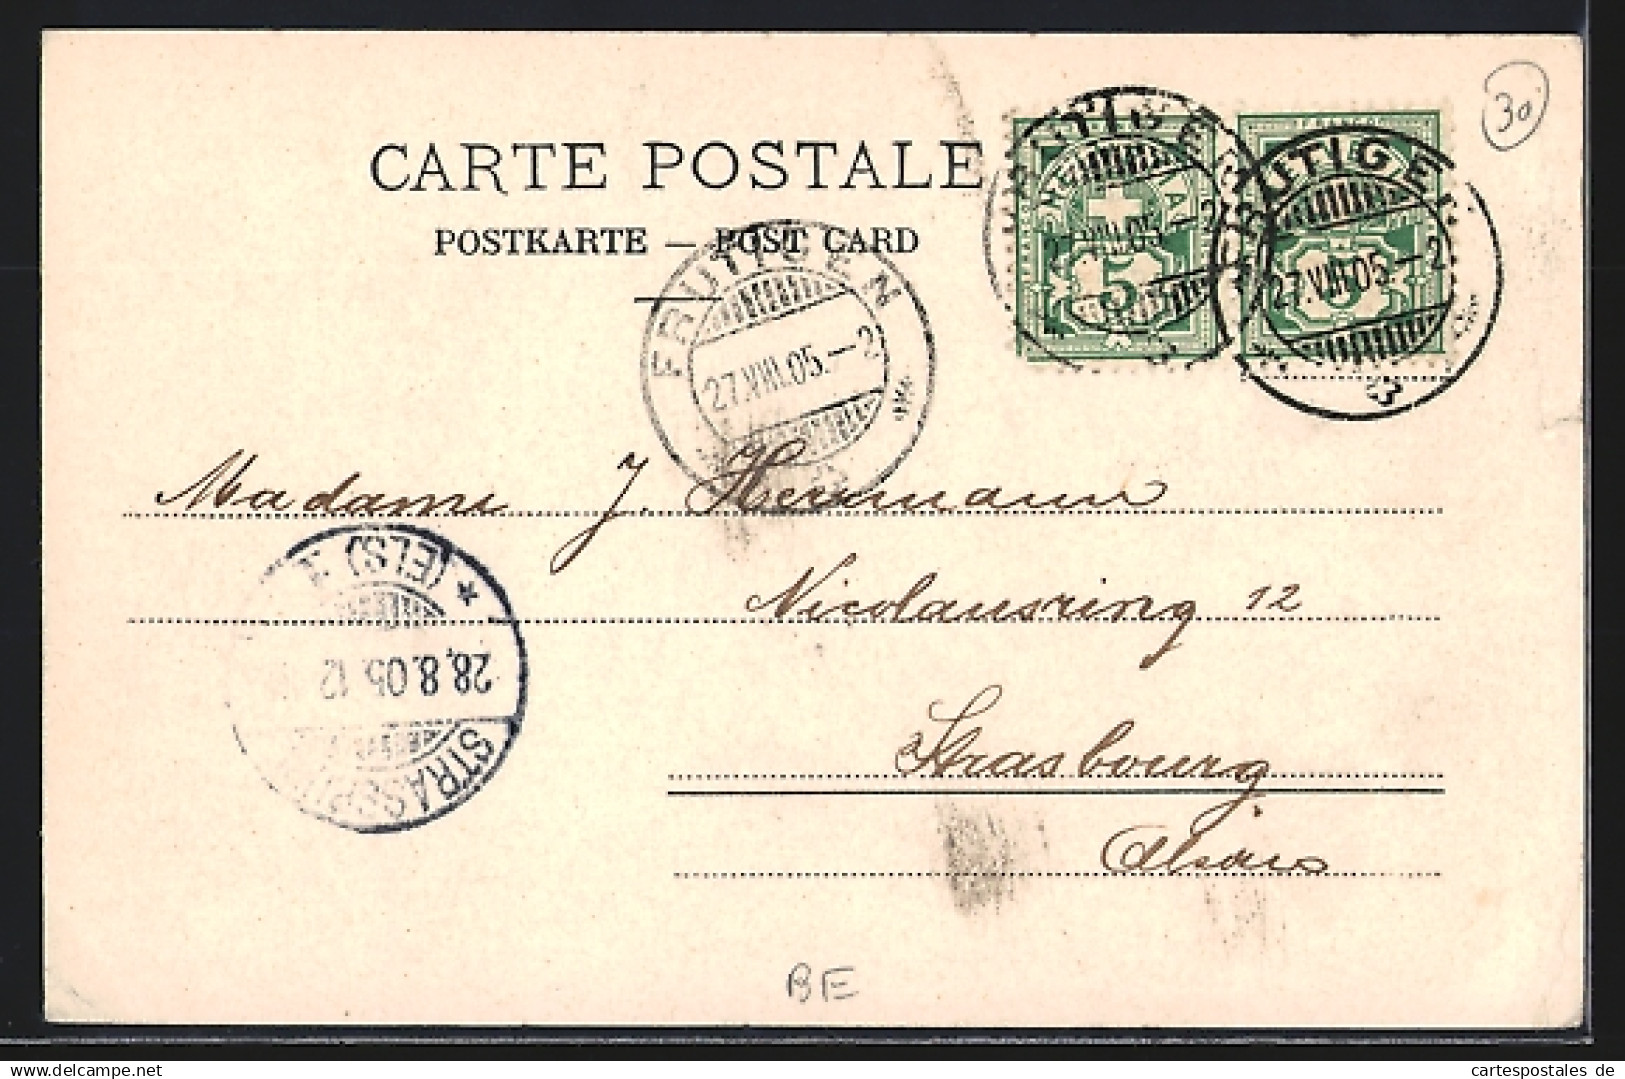 30
CARTE POSTALE
POSTKARTE — POST CARD
FRUTIGEN
27.VIII.05.—2
FRUTIGEN
27.VIII.05.—2
5
FRUTIGEN
27.VIII.05.—2
5
Madame J. Hermann
Nicolausring 12
Strasbourg
Alsace
(ELS)
28.8.05.12
STRASSBURG
BE
cartespostales de